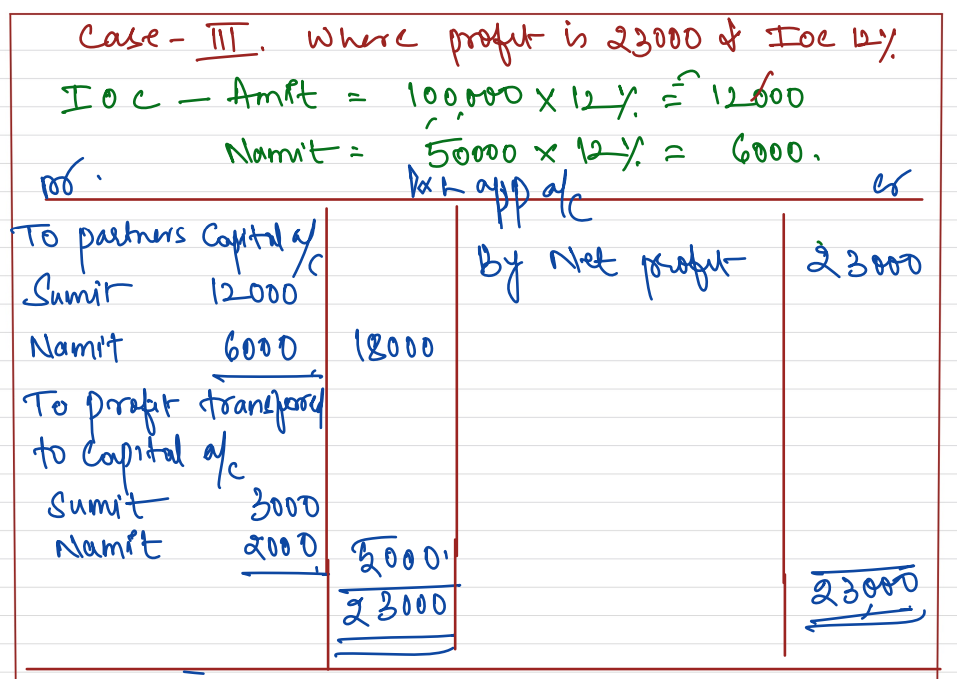 Case - III. Where profit is 23000 & IOC 12%
IOC - Amit = 100000 × 12% = 12000
Namit = 50000 × 12% = 6000.
Dr. P&L app a/c Cr
To partners Capital a/c By Net profit 23000
Sumit 12000
Namit 6000 18000
To Profit transferred
to Capital a/c
Sumit 3000
Namit 2000 5000
23000 23000